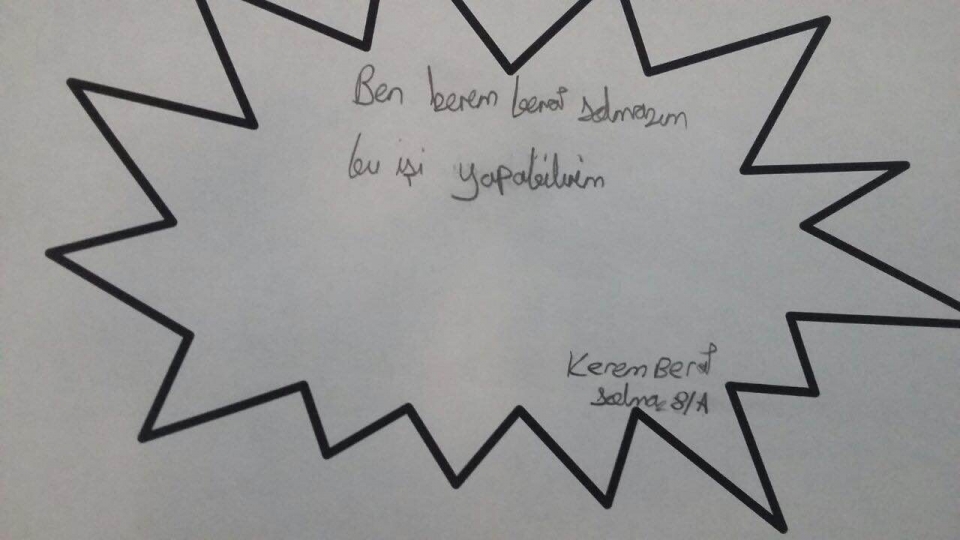 Ben kerem berat solmazım
bu işi yapabilirim
Kerem Berat
Solmaz 8/A